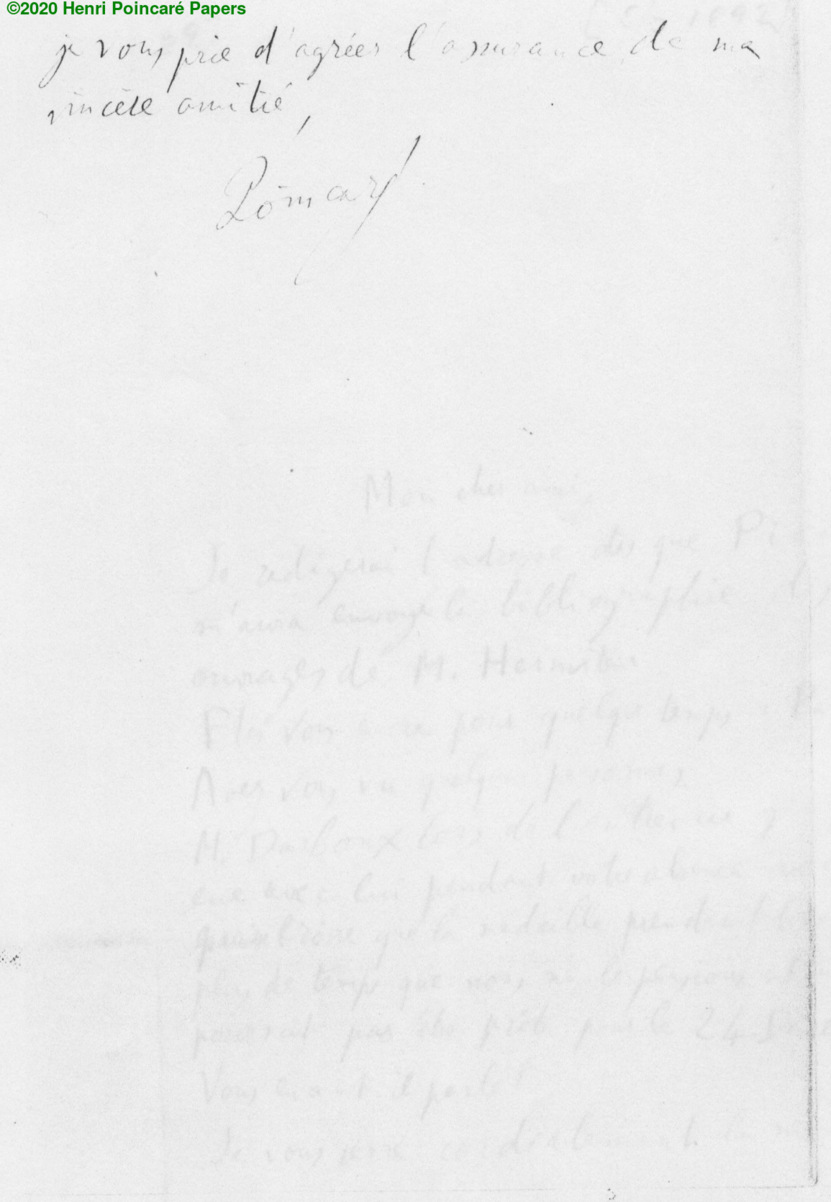 ©2020 Henri Poincaré Papers
je vous prie d'agréer l'assurance de ma
sincère amitié,
Poincaré
Mon cher ami,
Je redigerai l'adresse dès que Pi
m'aura envoyé la bibliographie
ouvrages de M. Hermite
pour quelque temps
Avez vous vu quelques personnes
M. Darboux lors de l'entrevue
eue avec lui pendant votre absence
que la médaille prendrait
plus de temps que nous ne le pensions
pourrait pas être prête pour le 24
Vous en a-t-il parlé?
Je vous serre cordialement la